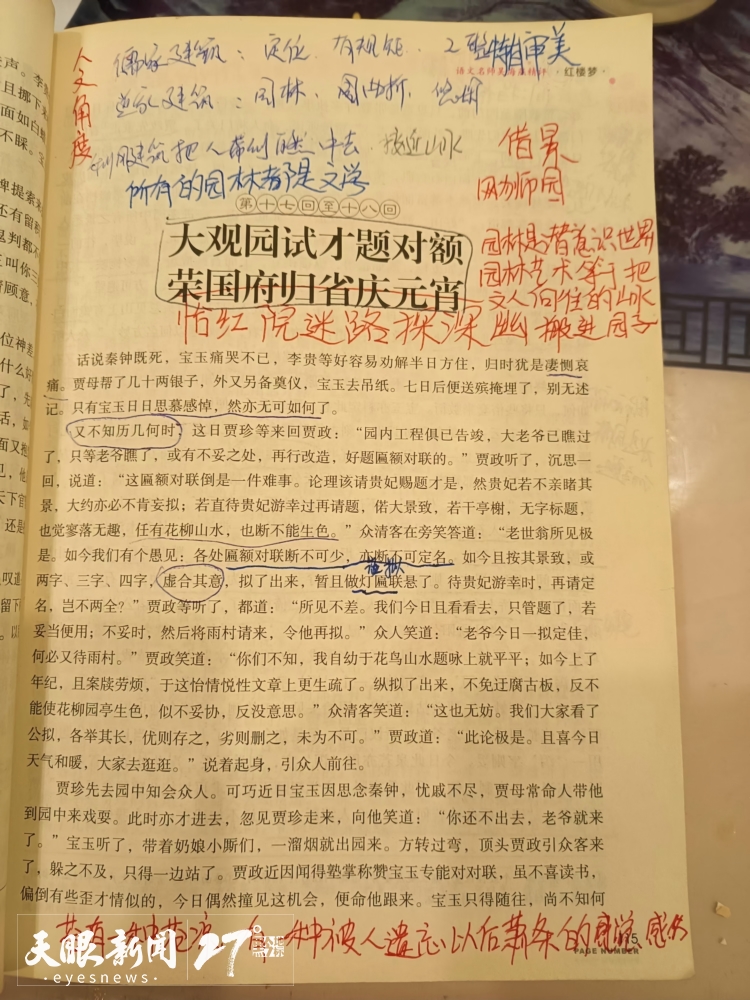 人文角度
儒家建筑：定位 有规矩
审美
语文名师
·红楼梦·
道家建筑：园林
利用建筑把人带到自然中去 接近山水
借景
所有的园林都是文学
网师园
第十七回至十八回
大观园试才题对额
荣国府归省庆元宵
怡红院迷路探深幽
园林是潜意识世界
园林艺术等于把
文人向往的山水
搬进园子
话说秦钟既死，宝玉痛哭不已，李贵等好容易劝解半日方住，归时犹是凄恻哀
痛。贾母帮了几十两银子，外又另备奠仪，宝玉去吊纸。七日后便送殡掩埋了，别无述
记。只有宝玉日日思慕感悼，然亦无可如何了。
又不知历几何时，这日贾珍等来回贾政：“园内工程俱已告竣，大老爷已瞧过
了，只等老爷瞧了，或有不妥之处，再行改造，好题匾额对联的。”贾政听了，沉思一
回，说道：“这匾额对联倒是一件难事。论理该请贵妃赐题才是，然贵妃若不亲睹其
景，大约亦必不肯妄拟；若直待贵妃游幸过再请题，偌大景致，若干亭榭，无字标题，
也觉寥落无趣，任有花柳山水，也断不能生色。”众清客在旁笑答道：“老世翁所见极
是。如今我们有个愚见：各处匾额对联断不可少，亦断不可定名。如今且按其景致，或
两字、三字、四字，虚合其意，拟了出来，暂且做灯匾联悬了。待贵妃游幸时，再请定
名，岂不两全？”贾政等听了，都道：“所见不差。我们今日且看看去，只管题了，若
妥当便用；不妥时，然后将雨村请来，令他再拟。”众人笑道：“老爷今日一拟定佳，
何必又待雨村。”贾政笑道：“你们不知，我自幼于花鸟山水题咏上就平平；如今上了
年纪，且案牍劳烦，于这怡情悦性文章上更生疏了。纵拟了出来，不免迂腐古板，反不
能使花柳园亭生色，似不妥协，反没意思。”众清客笑道：“这也无妨。我们大家看了
公拟，各举其长，优则存之，劣则删之，未为不可。”贾政道：“此论极是。且喜今日
天气和暖，大家去逛逛。”说着起身，引众人前往。
贾珍先去园中知会众人。可巧近日宝玉因思念秦钟，忧戚不尽，贾母常命人带他
到园中来戏耍。此时亦才进去，忽见贾珍走来，向他笑道：“你还不出去，老爷就来
了。”宝玉听了，带着奶娘小厮们，一溜烟就出园来。方转过弯，顶头贾政引众客来
了，躲之不及，只得一边站了。贾政近因闻得塾掌称赞宝玉专能对对联，虽不喜读书，
偏倒有些歪才情似的，今日偶然撞见这机会，便命他跟来。宝玉只得随往，尚不知何
一种被人遗忘以后萧条的感觉 感伤
天眼新闻
eyesnews
27°
PAGE NUMBER